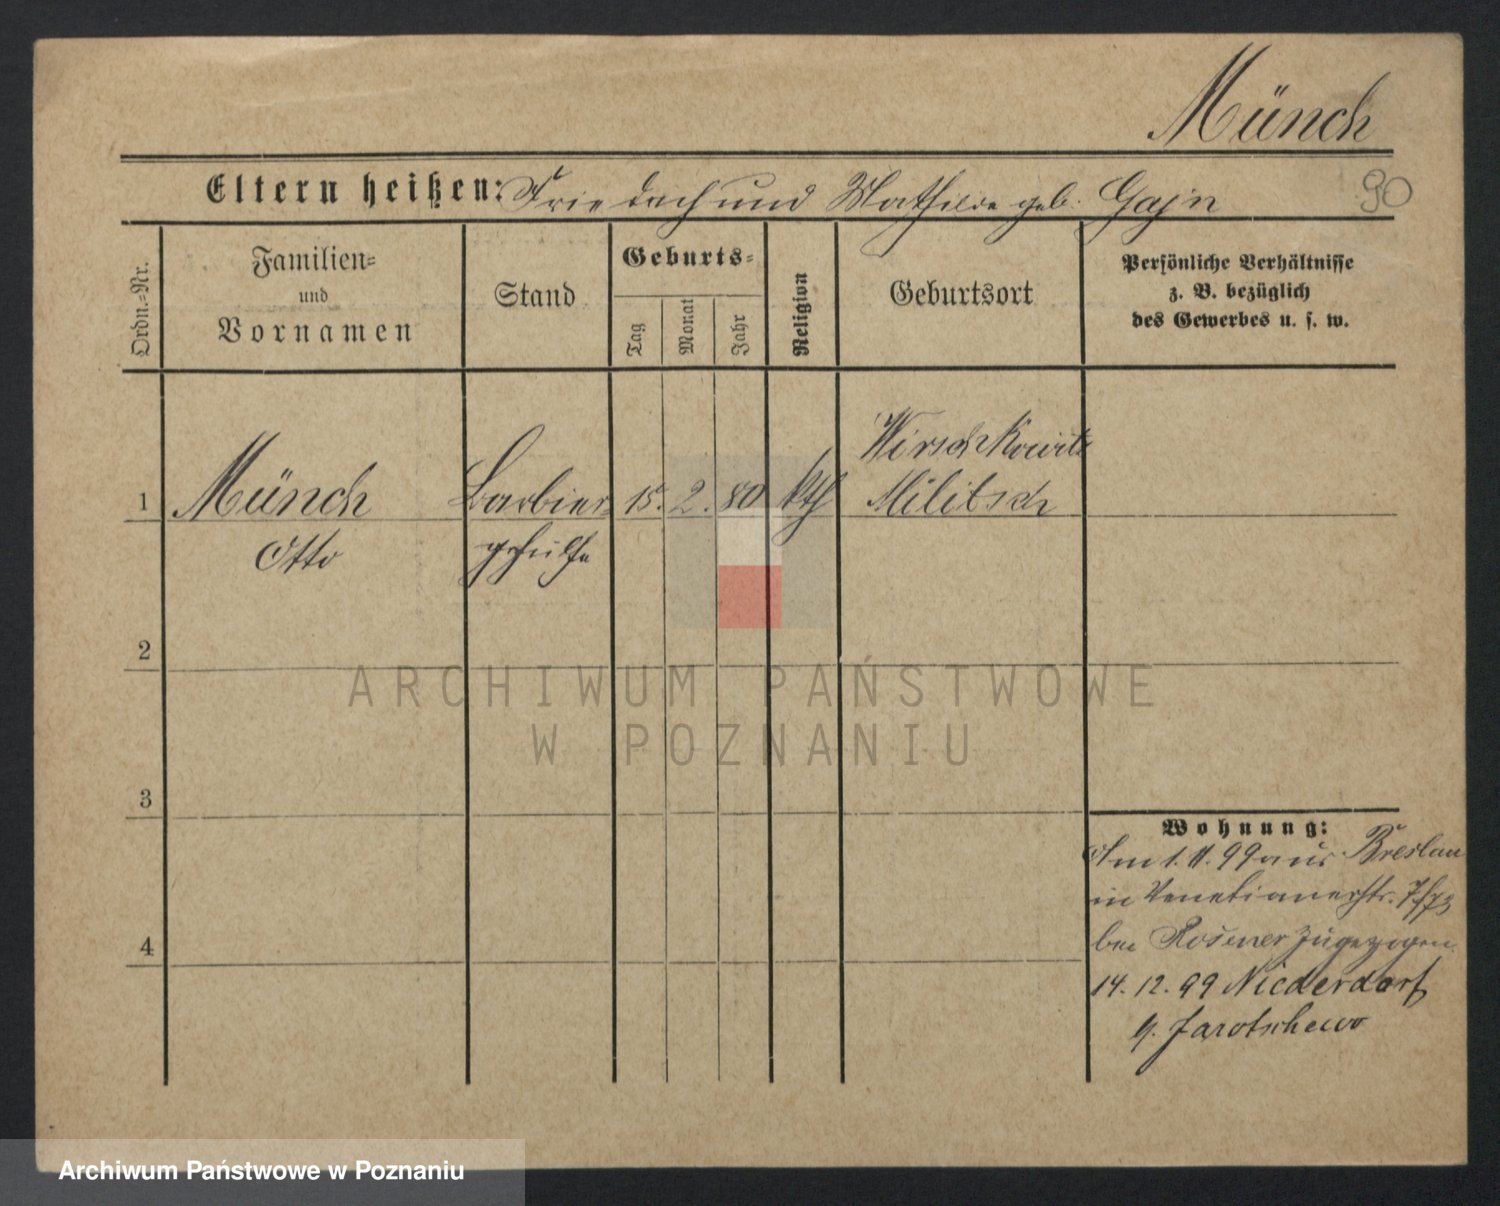 Münch
Eltern heißen: Friedrich und Mathilde geb.
90
Ordn.=Nr.
Familien=
und
Vornamen
Stand
Geburts=
Tag
Monat
Jahr
Religion
Geburtsort
Persönliche Verhältnisse
z. B. bezüglich
des Gewerbes u. s. w.
1
Münch
Otto
Barbier
gehülfe
15.
2.
80
kth
Wirschkowitz
Militsch
2
3
4
ARCHIWUM PAŃSTWOWE
W POZNANIU
Wohnung:
Am 1. 11. 99 aus Breslau
in Venetianerstr.
bei Rosener zugezogen.
14. 12. 99 Niederdorf
Jarotschewo
Archiwum Państwowe w Poznaniu